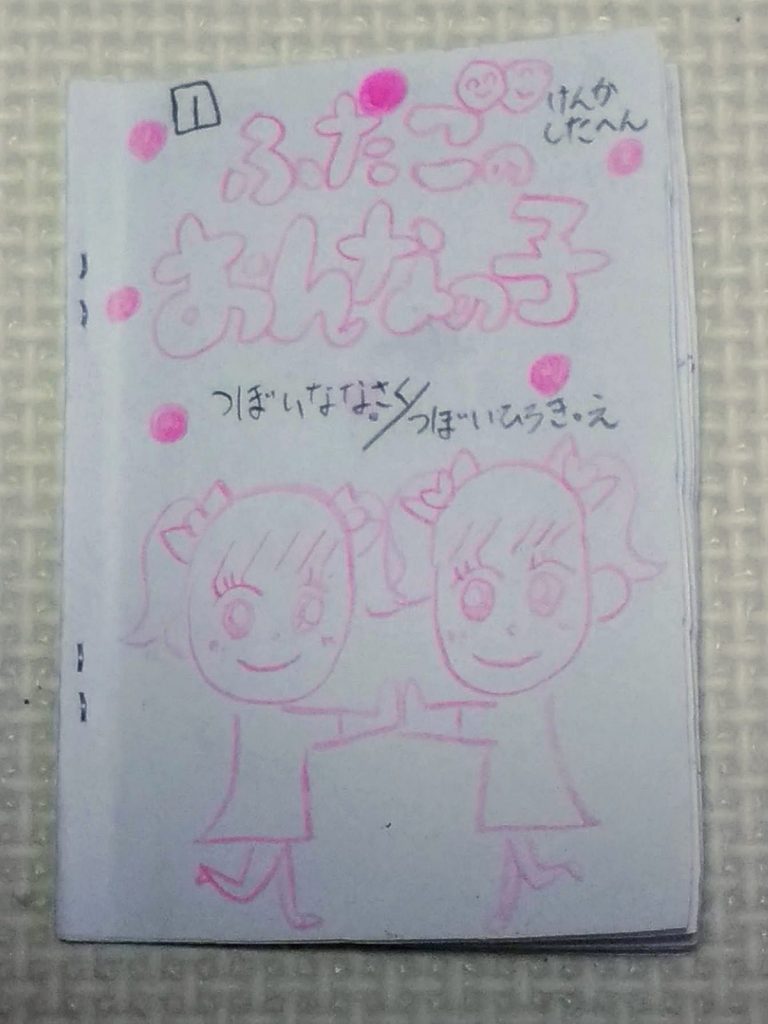 1
ふたごの
けんか
したへん
おんなの子
つぼいなな。さく/つぼいひろき。え